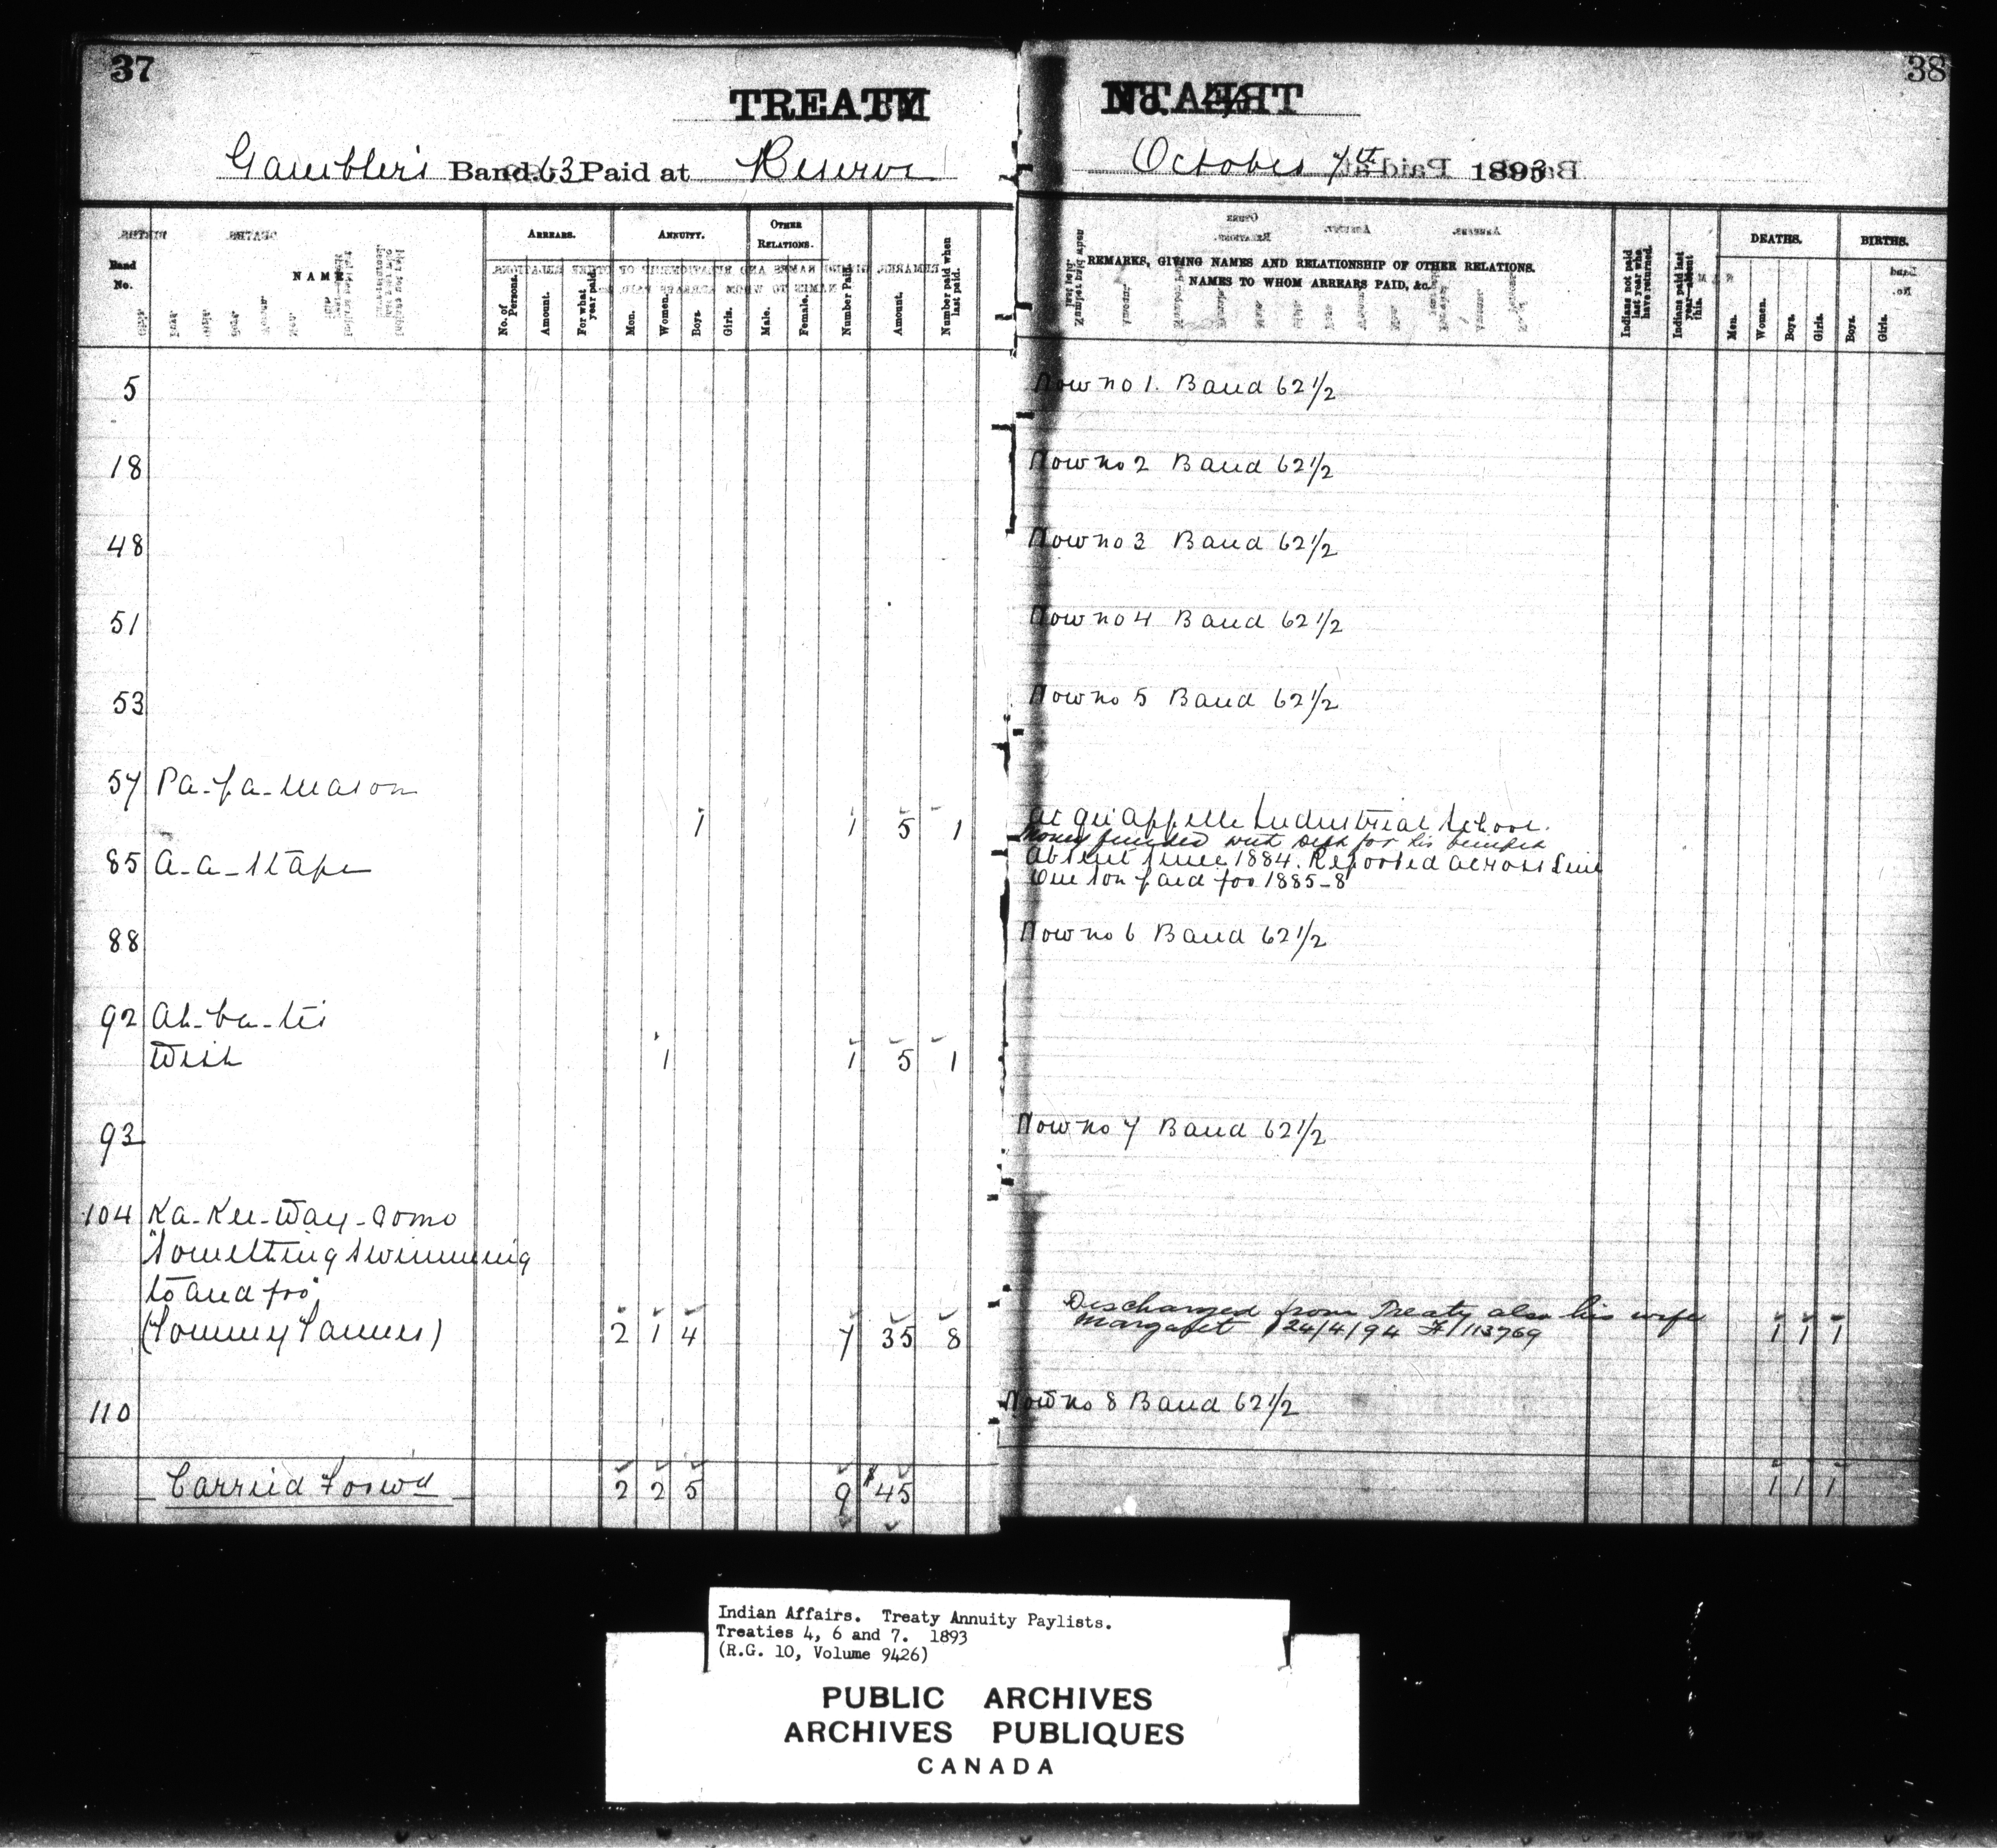 37
TREATY
Gambler's Band. 63 Paid at Reserve
Band No.
NAME
ARREARS.
No. of Persons.
Amount.
For what year paid.
ANNUITY.
Men.
Women.
Boys.
Girls.
OTHER RELATIONS.
Male.
Female.
Number Paid.
Amount.
Number paid when last paid.
5
18
48
51
53
57 Pa-pa-mason
1 1 5 1
85 A-a-stape
88
92 Ah-ba-tis
Wish
1 1 5 1
93
104 Ka-Kee-Way-como
"Something swimming
to and fro"
(Tommy Tanner) 2 1 4 7 35 8
110
Carried Forwd 2 2 5 9 $45
38
No. 4
October 7th 1893
REMARKS, GIVING NAMES AND RELATIONSHIP OF OTHER RELATIONS.
NAMES TO WHOM ARREARS PAID, &c.
Indians not paid last year who have returned.
Indians paid last year absent this.
DEATHS.
Men.
Women.
Boys.
Girls.
BIRTHS.
Boys.
Girls.
Now no 1. Band 62 1/2
Now no 2 Band 62 1/2
Now no 3 Band 62 1/2
Now no 4 Band 62 1/2
Now no 5 Band 62 1/2
At Qu'Appelle Industrial School.
Money funded with Dept for his benefit
Absent since 1884. Reported across Line
One son paid for 1885-8
Now no 6 Band 62 1/2
Now no 7 Band 62 1/2
Discharged from Treaty also his wife
Margaret 24/4/94 F/113769 1 1 1
Now no 8 Band 62 1/2
1 1 1
Indian Affairs. Treaty Annuity Paylists.
Treaties 4, 6 and 7. 1893
(R.G. 10, Volume 9426)
PUBLIC ARCHIVES
ARCHIVES PUBLIQUES
CANADA